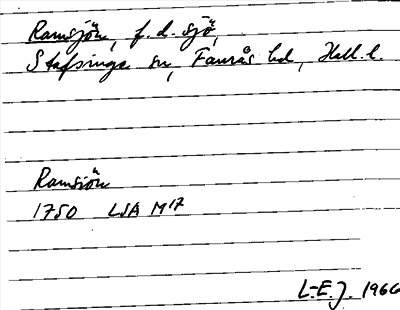 Ramsjön, f.d. sjö,
Stafsinge sn, Faurås hd, Hall. l.
Ramsiön
1750 LSA M17
L-E.J. 1966